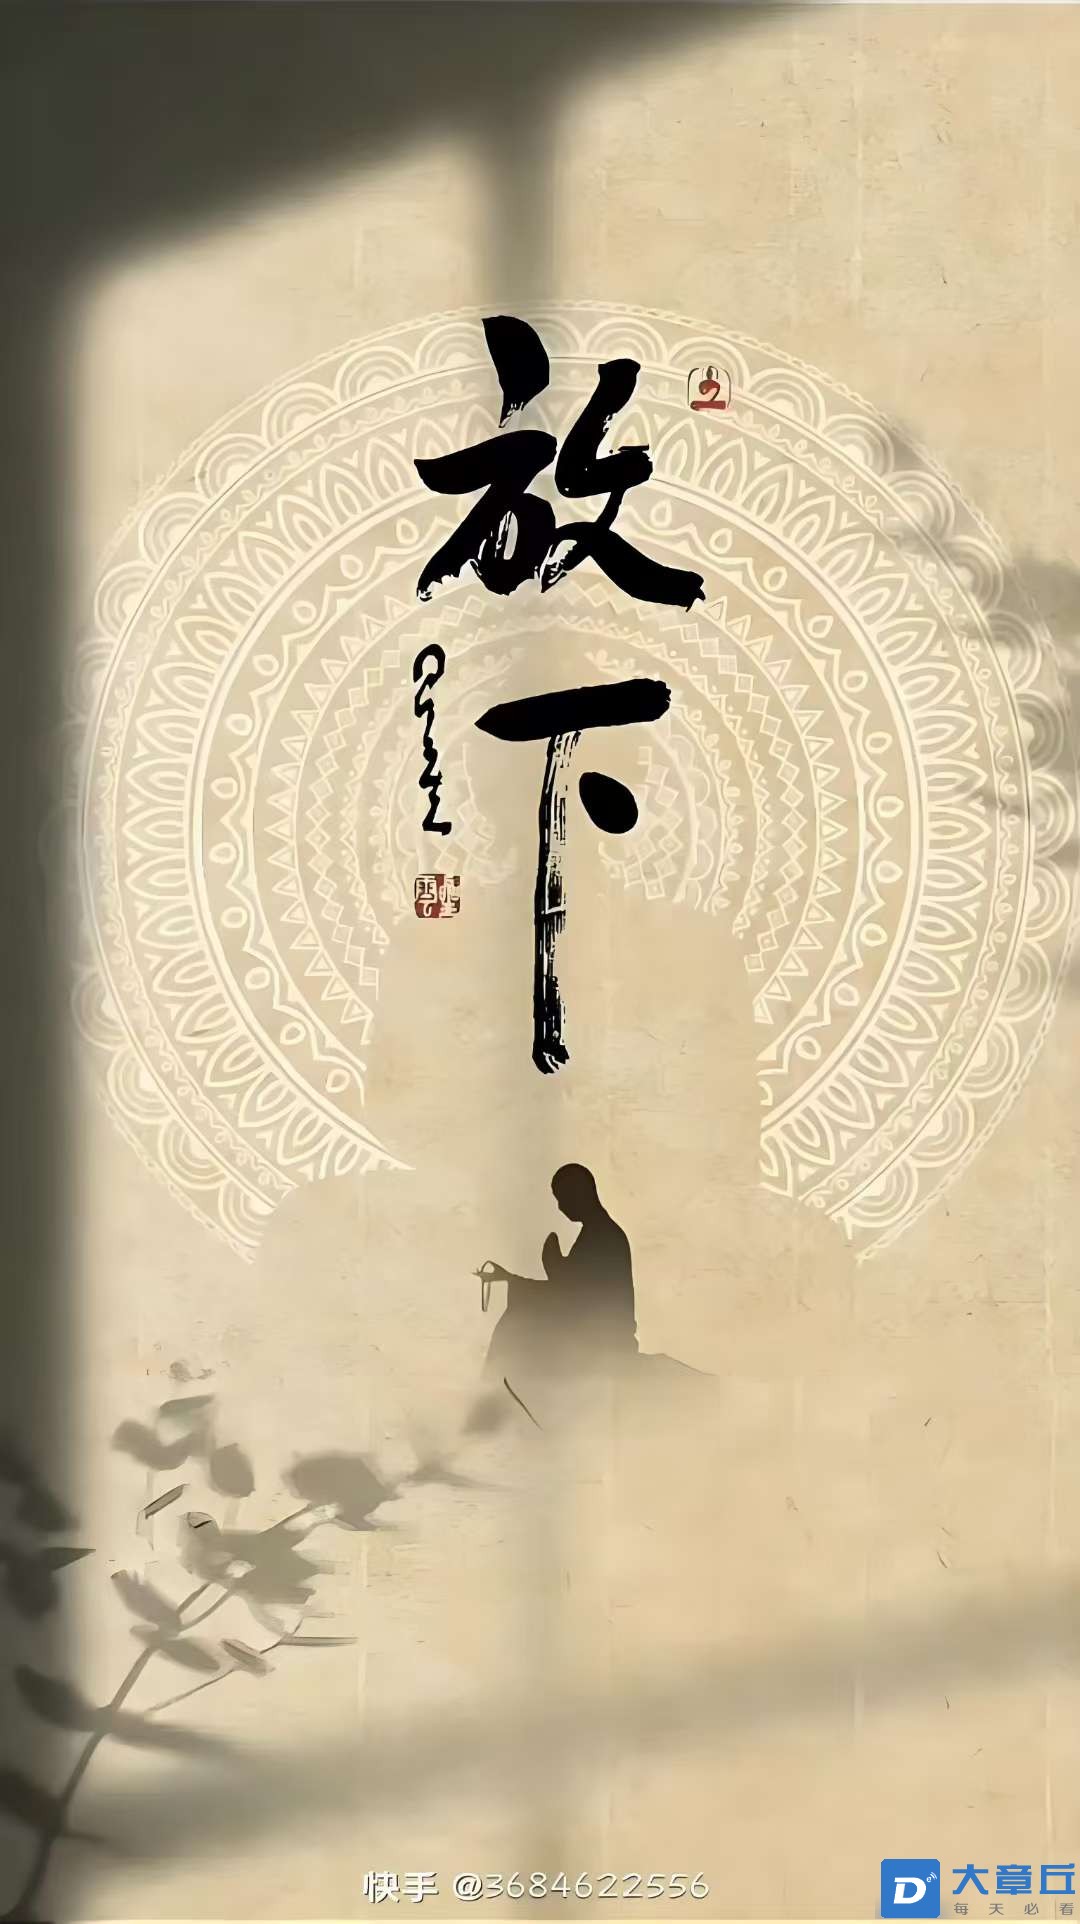 放下
星雲
快手 @3684622556
大章丘
每天必看